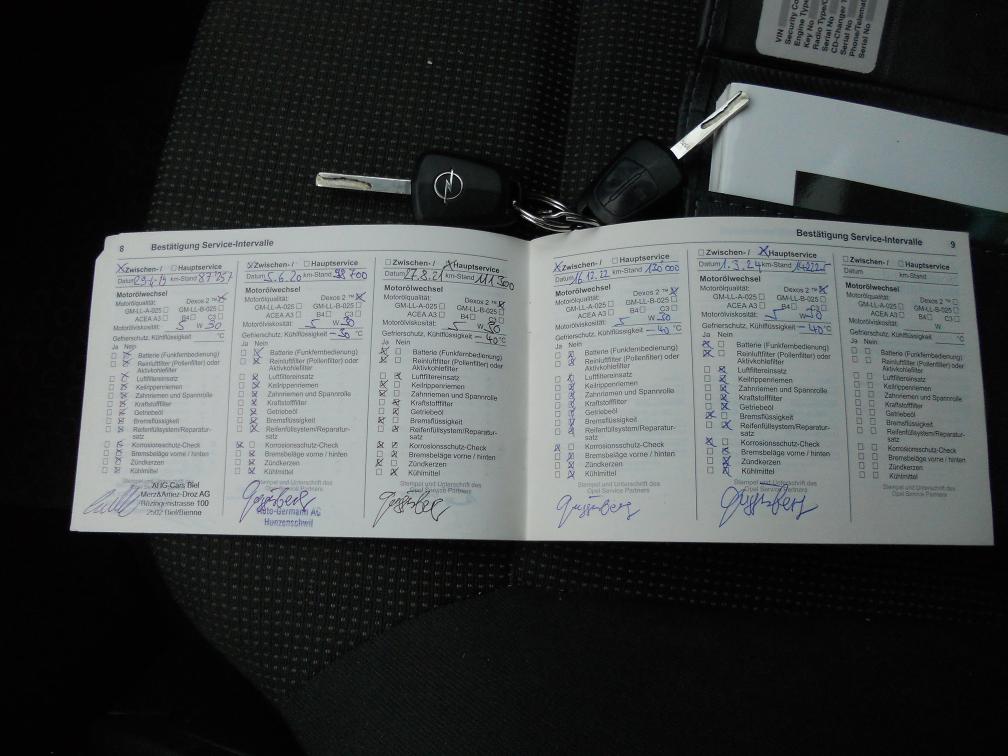 VIN
Security Co
Engine Type
Key No
Radio Type/C
Serial No
CD-Changer T
Serial No
Phone/Telemat
Serial No
8 Bestätigung Service-Intervalle
X Zwischen-/ Hauptservice
Datum km-Stand 87'257
Motorölwechsel
Motorölqualität: Dexos 2 ™
GM-LL-A-025 GM-LL-B-025
ACEA A3 B4 C3
Motorölviskosität: 5 W 30
Gefrierschutz, Kühlflüssigkeit °C
Ja Nein
Batterie (Funkfernbedienung)
Reinluftfilter (Pollenfilter) oder
Aktivkohlefilter
Luftfiltereinsatz
Keilrippenriemen
Zahnriemen und Spannrolle
Kraftstofffilter
Getriebeöl
Bremsflüssigkeit
Reifenfüllsystem/Reparatur-
satz
Korrosionsschutz-Check
Bremsbeläge vorne / hinten
Zündkerzen
Kühlmittel
AHG-Cars Biel
Merz&Amez-Droz AG
Längfeldstrasse 100
2502 Biel/Bienne
X Zwischen-/ Hauptservice
Datum 5.6.20 km-Stand 98'700
Motorölwechsel
Motorölqualität: Dexos 2 ™
GM-LL-A-025 GM-LL-B-025
ACEA A3 B4 C3
Motorölviskosität: 5 W 30
Gefrierschutz, Kühlflüssigkeit -30 °C
Ja Nein
Batterie (Funkfernbedienung)
Reinluftfilter (Pollenfilter) oder
Aktivkohlefilter
Luftfiltereinsatz
Keilrippenriemen
Zahnriemen und Spannrolle
Kraftstofffilter
Getriebeöl
Bremsflüssigkeit
Reifenfüllsystem/Reparatur-
satz
Korrosionsschutz-Check
Bremsbeläge vorne / hinten
Zündkerzen
Kühlmittel
Stempel und Unterschrift des
Opel Service Partners
Auto-Germann AG
Hunzenschwil
Zwischen-/ X Hauptservice
Datum 27.8.21 km-Stand 111'300
Motorölwechsel
Motorölqualität: Dexos 2 ™
GM-LL-A-025 GM-LL-B-025
ACEA A3 B4 C3
Motorölviskosität: 5 W 30
Gefrierschutz, Kühlflüssigkeit -40 °C
Ja Nein
Batterie (Funkfernbedienung)
Reinluftfilter (Pollenfilter) oder
Aktivkohlefilter
Luftfiltereinsatz
Keilrippenriemen
Zahnriemen und Spannrolle
Kraftstofffilter
Getriebeöl
Bremsflüssigkeit
Reifenfüllsystem/Reparatur-
satz
Korrosionsschutz-Check
Bremsbeläge vorne / hinten
Zündkerzen
Kühlmittel
Stempel und Unterschrift des
Opel Service Partners
Bestätigung Service-Intervalle 9
X Zwischen-/ Hauptservice
Datum 16.12.22 km-Stand 120 000
Motorölwechsel
Motorölqualität: Dexos 2 ™
GM-LL-A-025 GM-LL-B-025
ACEA A3 B4 C3
Motorölviskosität: 5 W 30
Gefrierschutz, Kühlflüssigkeit -40 °C
Ja Nein
Batterie (Funkfernbedienung)
Reinluftfilter (Pollenfilter) oder
Aktivkohlefilter
Luftfiltereinsatz
Keilrippenriemen
Zahnriemen und Spannrolle
Kraftstofffilter
Getriebeöl
Bremsflüssigkeit
Reifenfüllsystem/Reparatur-
satz
Korrosionsschutz-Check
Bremsbeläge vorne / hinten
Zündkerzen
Kühlmittel
Stempel und Unterschrift des
Opel Service Partners
Zwischen-/ X Hauptservice
Datum 1.3.24 km-Stand
Motorölwechsel
Motorölqualität: Dexos 2 ™
GM-LL-A-025 GM-LL-B-025
ACEA A3 B4 C3
Motorölviskosität: 5 W
Gefrierschutz, Kühlflüssigkeit -40 °C
Ja Nein
Batterie (Funkfernbedienung)
Reinluftfilter (Pollenfilter) oder
Aktivkohlefilter
Luftfiltereinsatz
Keilrippenriemen
Zahnriemen und Spannrolle
Kraftstofffilter
Getriebeöl
Bremsflüssigkeit
Reifenfüllsystem/Reparatur-
satz
Korrosionsschutz-Check
Bremsbeläge vorne / hinten
Zündkerzen
Kühlmittel
Stempel und Unterschrift des
Opel Service Partners
Zwischen-/ Hauptservice
Datum km-Stand
Motorölwechsel
Motorölqualität: Dexos 2 ™
GM-LL-A-025 GM-LL-B-025
ACEA A3 B4 C3
Motorölviskosität: W
Gefrierschutz, Kühlflüssigkeit °C
Ja Nein
Batterie (Funkfernbedienung)
Reinluftfilter (Pollenfilter) oder
Aktivkohlefilter
Luftfiltereinsatz
Keilrippenriemen
Zahnriemen und Spannrolle
Kraftstofffilter
Getriebeöl
Bremsflüssigkeit
Reifenfüllsystem/Reparatur-
satz
Korrosionsschutz-Check
Bremsbeläge vorne / hinten
Zündkerzen
Kühlmittel
Stempel und Unterschrift des
Opel Service Partners